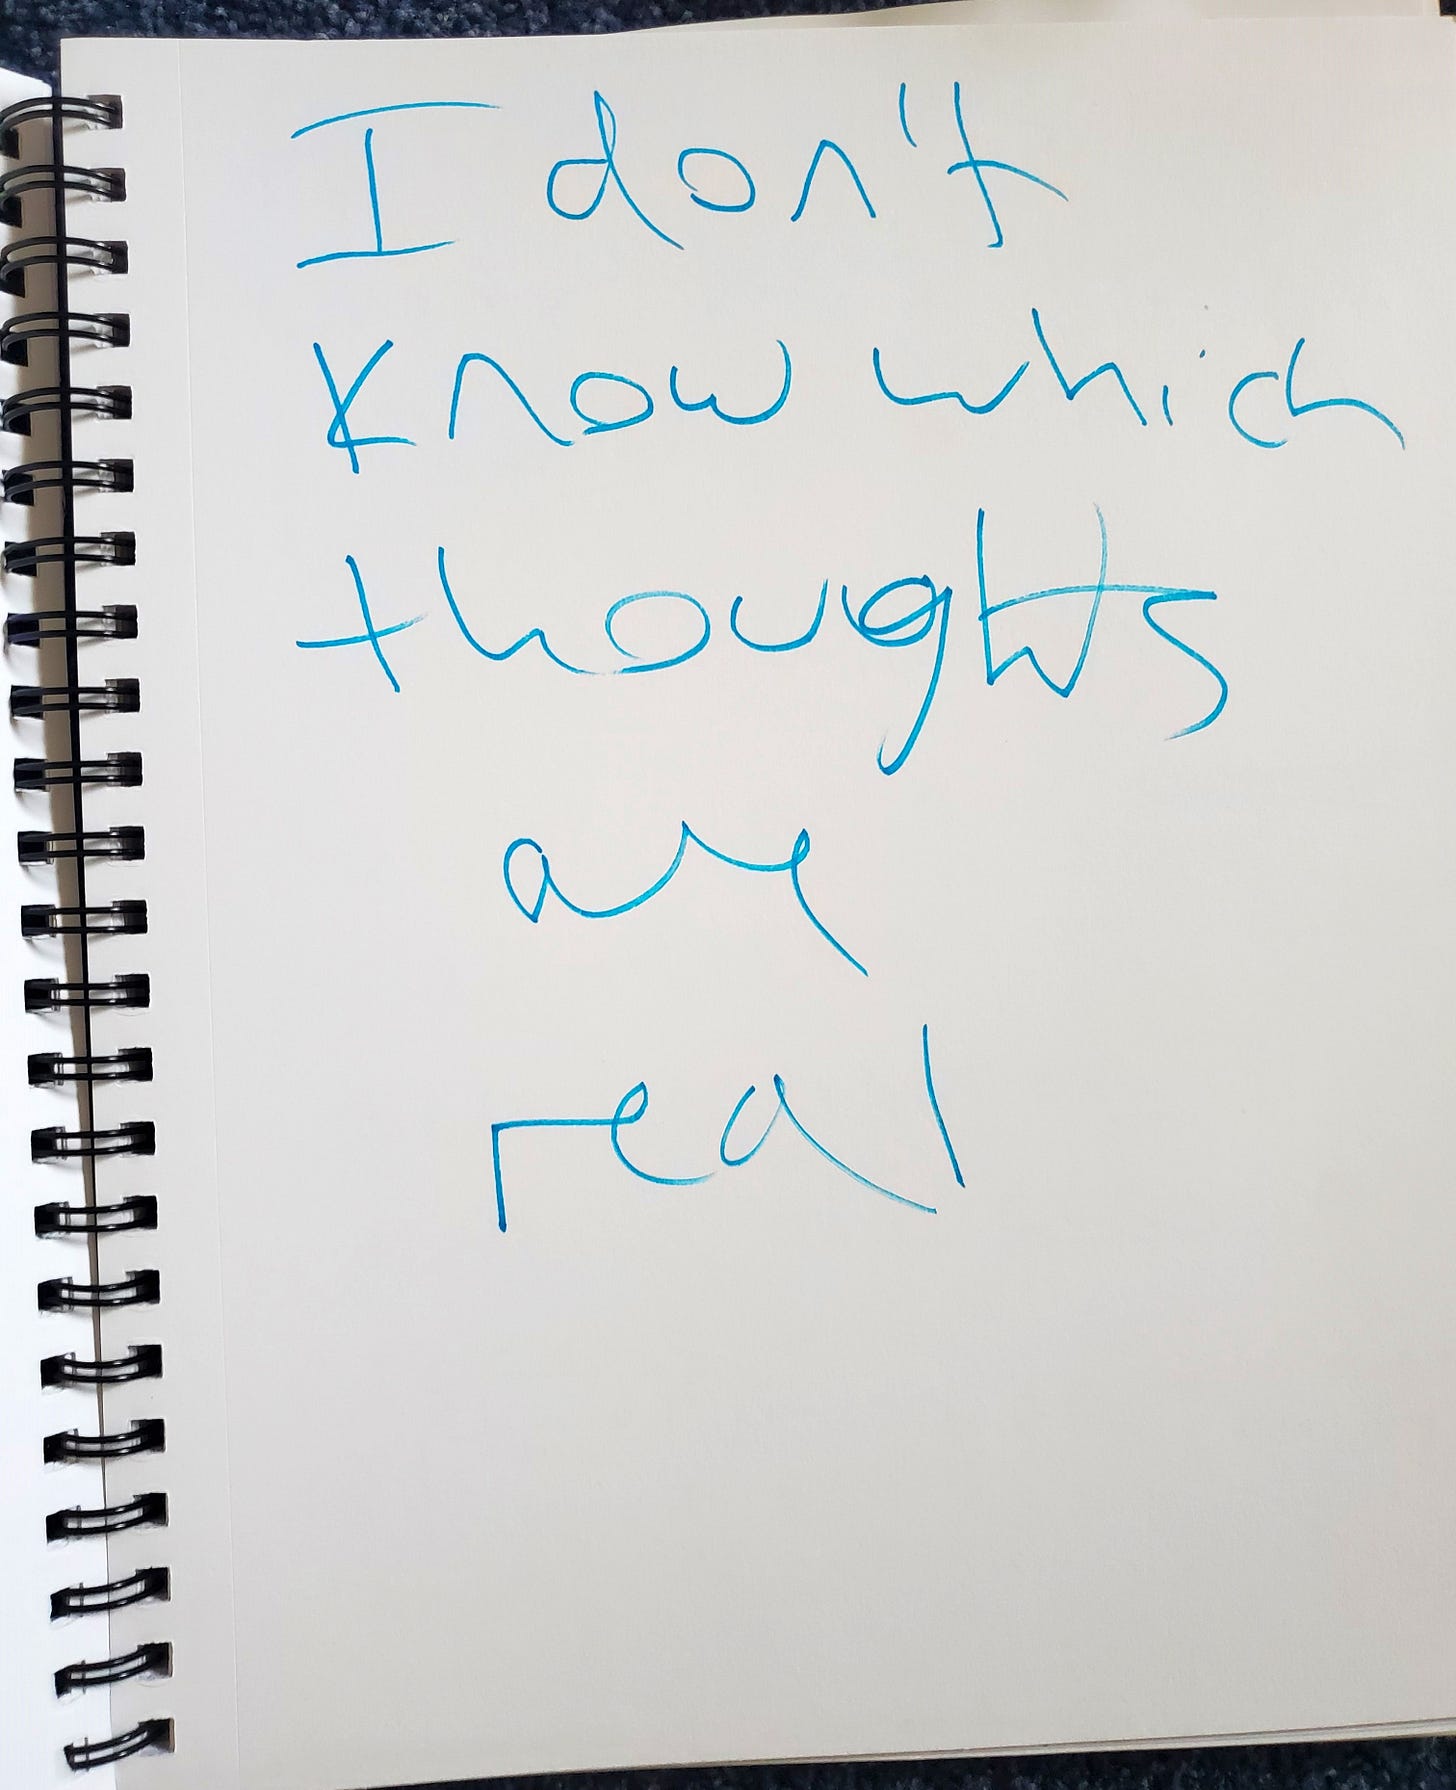 I don't
know which
thoughts
are
real